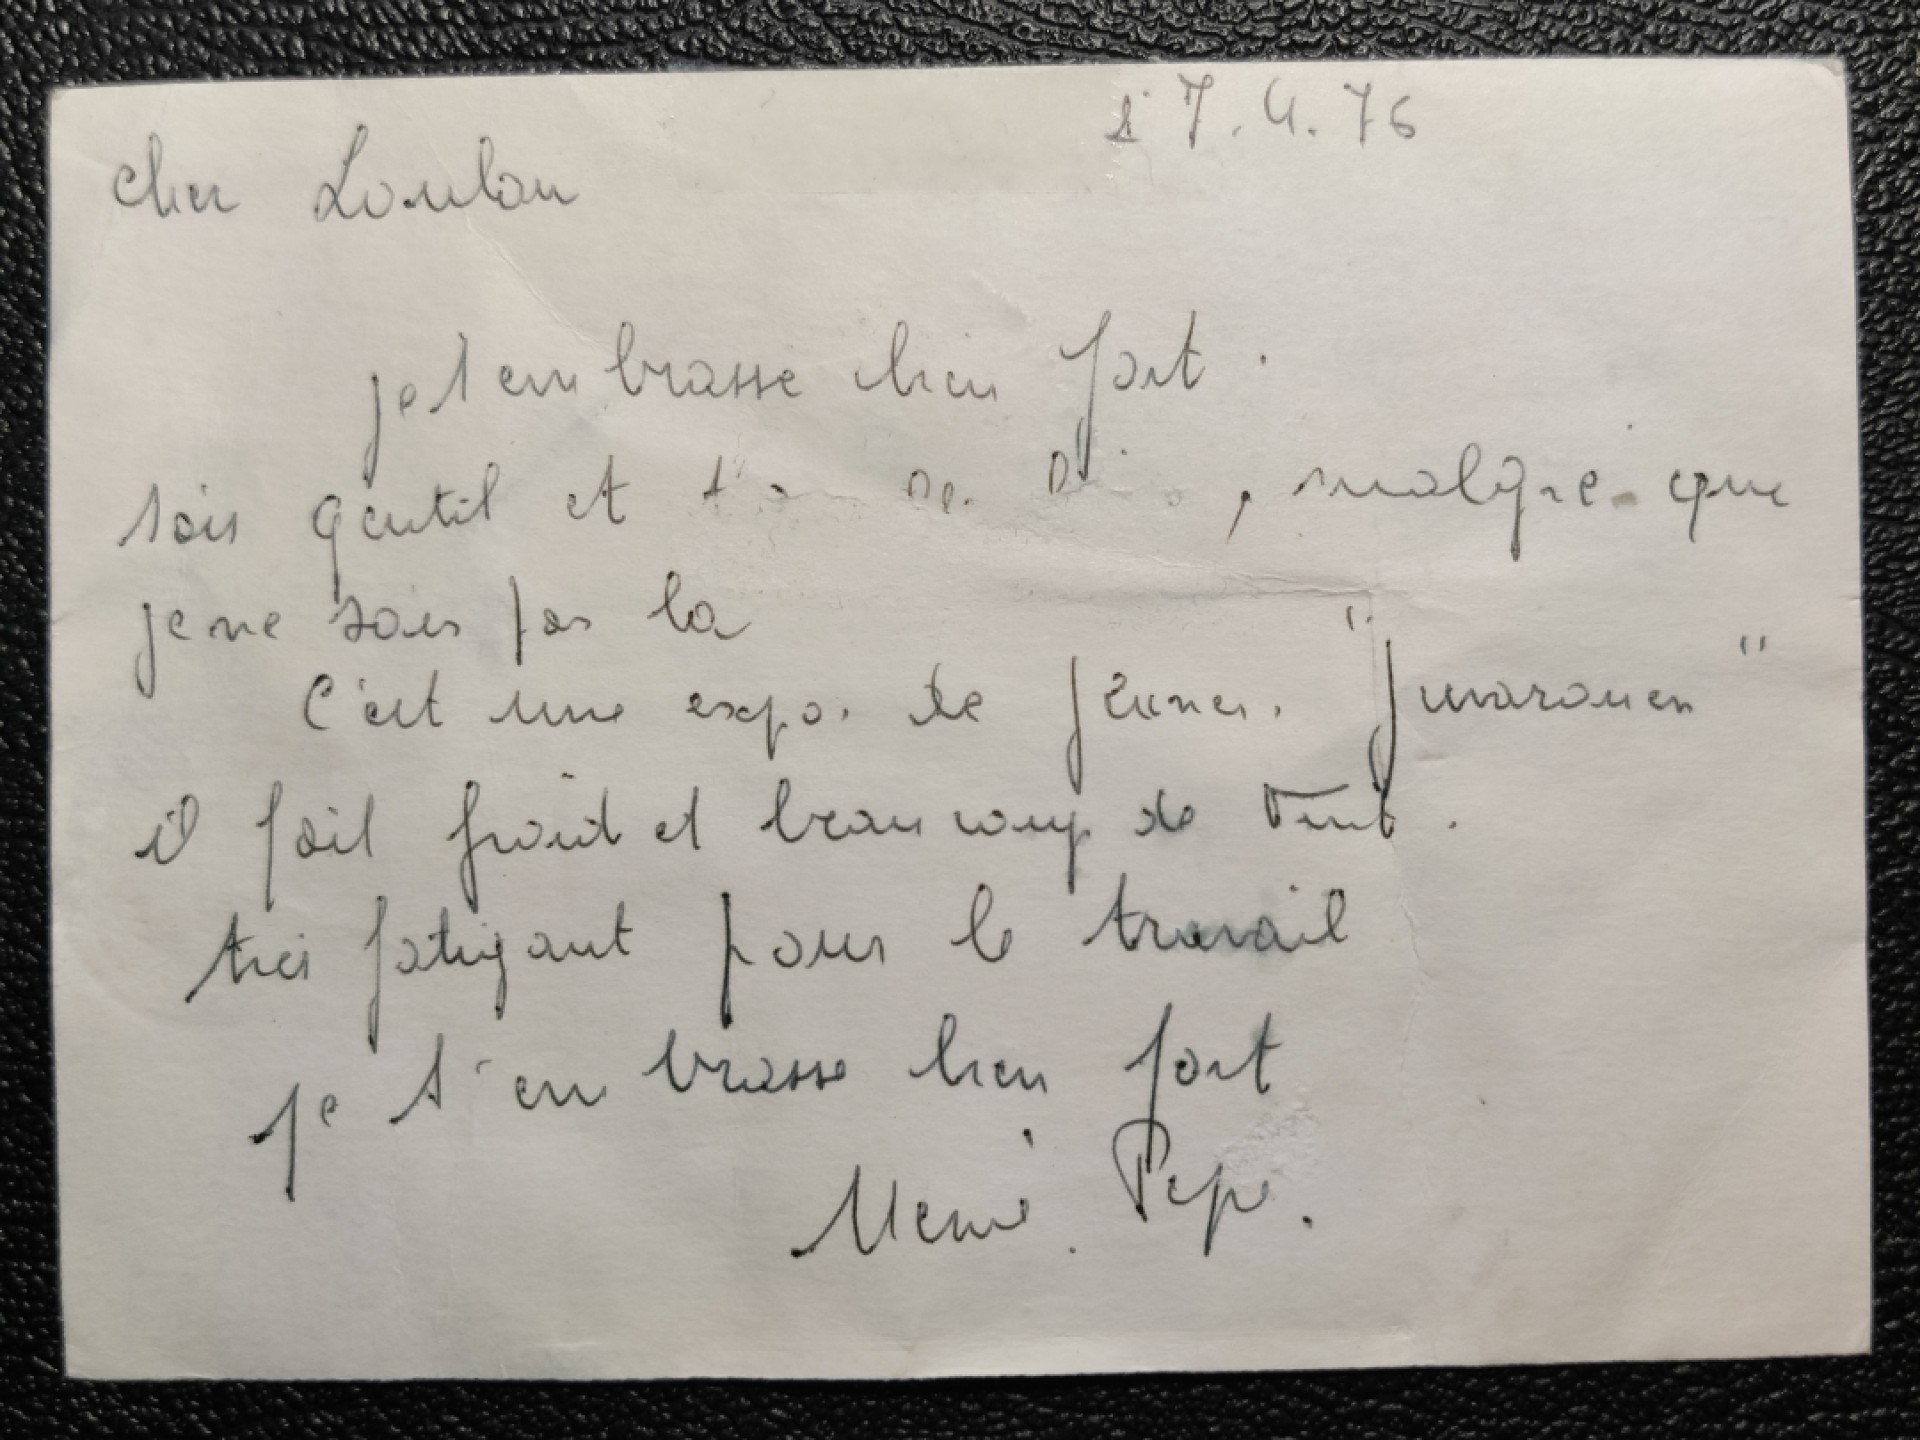 17.4.76
cher Loulou
je t'embrasse bien fort.
sois gentil et, malgré que
je ne sois pas là
C'est une expo. de
il fait froid et beaucoup de vent.
très fatigant pour le travail
je t'embrasse bien fort
Mémé. Pépé.